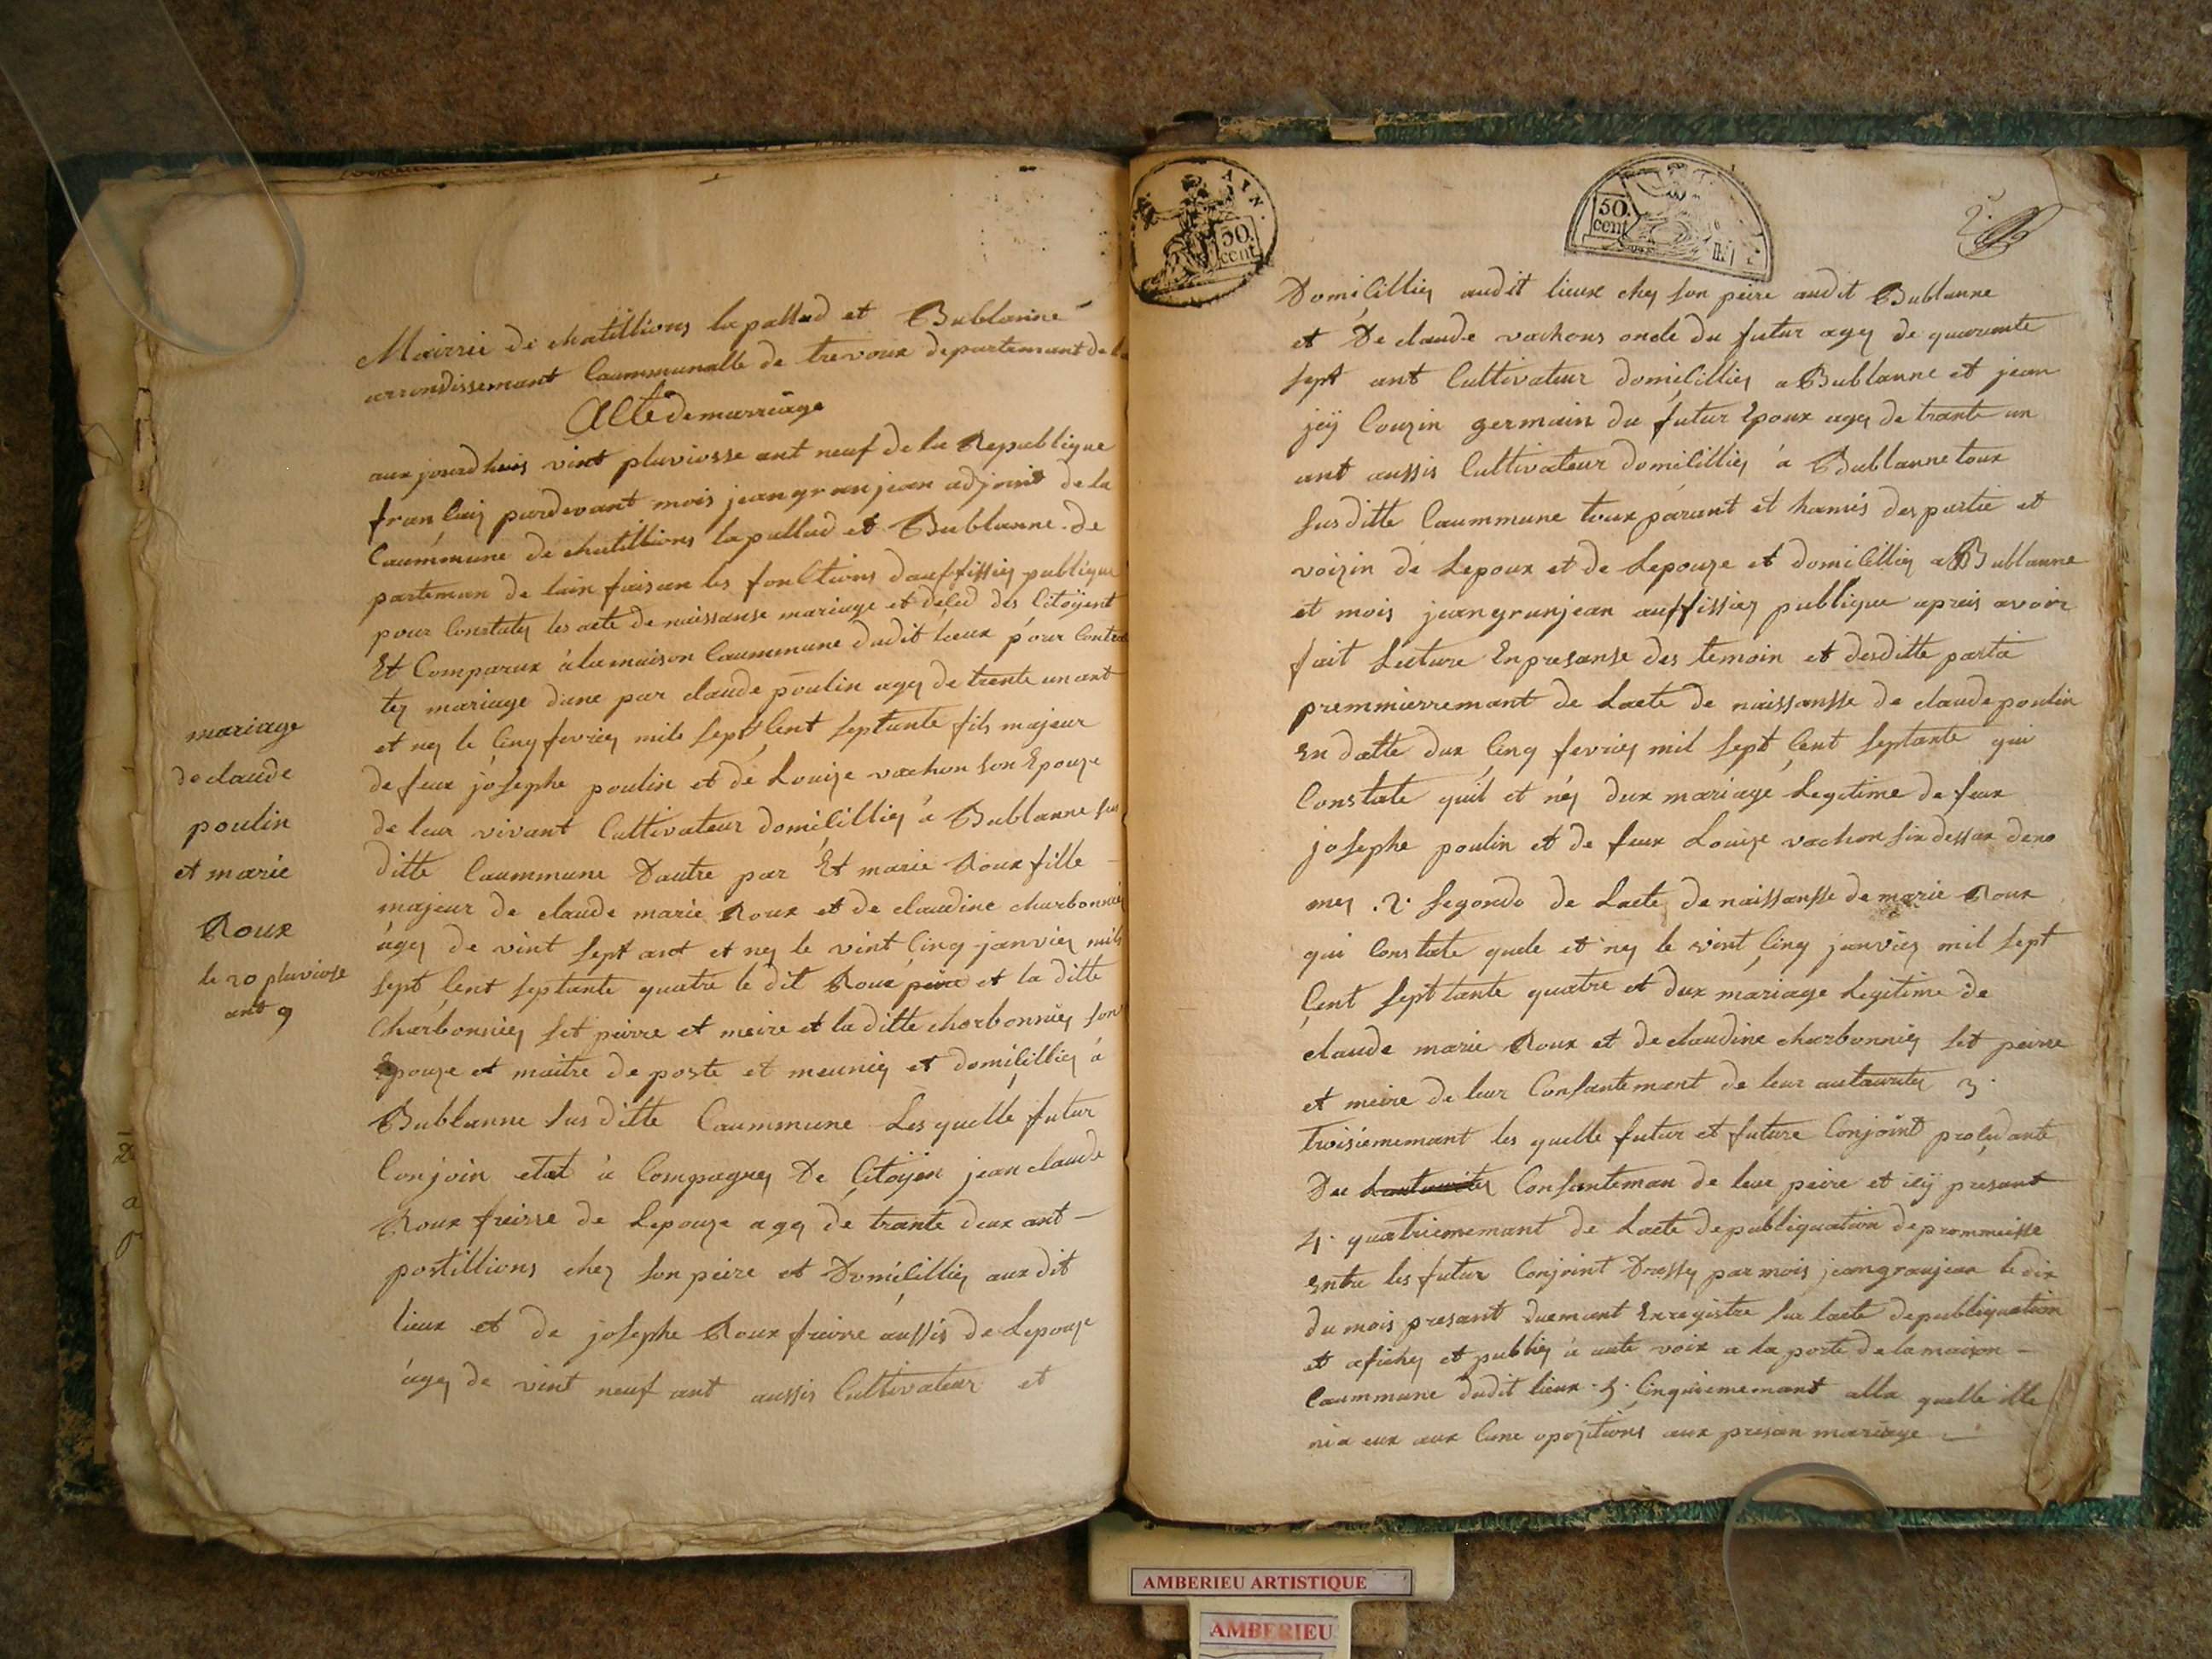 Mairrie de chatillions lapallud et Bublanne
arrondissemant Caummunalle de trevoux departemant de l
Acte de marriage
aux jourdhuis vint pluviosse ant neuf de la Republique
francaiz pardevant mois jean granjean adjoint de la
Caummune de chatillions lapallud et Bublanne de
parteman de lain faisan les fonctions dauffissiez publique
pour Constatez les acte de naissanse mariage et déced des Citoÿent
Et Comparux à la maison Caummune dudit lieux pour Contra
tez mariage dune par claude poulin agez de trente un ant
et nez le Cinq fevriez mile sept Cent septante fils majeur
de feux josephe poulin et de Louize vachon son Epouze
de leur vivant Cultivateur domicilliez à Bublanne sus
ditte Caummune Dautre par Et marie Roux fille
majeur de claude marie Roux et de claudine charbonniez
àgez de vint sept ant et nez le vint Cinq janviez mils
sept Cent septante quatre le dit Roux peire et la ditte
Charbonniez set peirre et meire et la ditte charbonniez son
Epouze et maitre de poste et meuniez et domicilliez à
Bublanne susditte Caummune Lesquelle futur
Conjoin etat à Compagnez De Citoÿen jean claude
Roux freirre de Lepouze agez de trante deux ant
postillions chez son peire et Domicilliez audit
lieux et de josephe Roux freirre aussis de Lepouze
àgez de vint neuf ant aussis Cultivateur et
mariage
de claude
poulin
et marie
Roux
le 20 pluviose
ant 9
AYN.
50.
cent
50.
cent
2.
Domicilliez audit lieux chez son peire audit Bublanne
et De claude vachons oncle du futur agez de quarante
sept ant Cultivateur domicilliez a Bublanne et jean
jeÿ Couzin germain du futur Epoux agez de trante un
ant aussis Cultivateur domicilliez à Bublanne toux
susditte Caummune toux parant et hamis des partie et
voizin de Lepoux et de Lepouze et domicilliez a Bublanne
et mois jean granjean auffissiez publique apreis avoir
fait Lecture Enpresanse des temoin et desditte partie
premmierremant de Lacte de naissansse de claude poulin
En datte dux Cinq fevriez mil sept Cent septante qui
Constate quil et néz dux mariage Legitime de feux
josephe poulin et de feux Louize vachon sindessax deno
mez .2. segondo de Lacte de naissansse de marie Roux
qui Constate quele et nez le vint Cinq janviez mil sept
Cent sept tante quatre et dux mariage Legitime de
claude marie Roux et de claudine charbonniez set peirre
et meire de leur Consantemant de leur autauritez 3.
troisiememant les quelle futur et future Conjoint procedante
Du Consanteman de leur peire et icÿ présant
4. quatriememant de Lacte de publiquation de prommeisse
Entre les futur Conjoint Dressez par mois jean granjean le dix
du mois presant duemant Enregistre sur lacte de publiquation
et afichez et publiez à aute voix a la porte de la maison
Caummune dudit lieux .5. Cinquiememant alla quelle ille
nia eux aux Cune opozitions aux presan mariage
AMBERIEU ARTISTIQUE
AMBERIEU